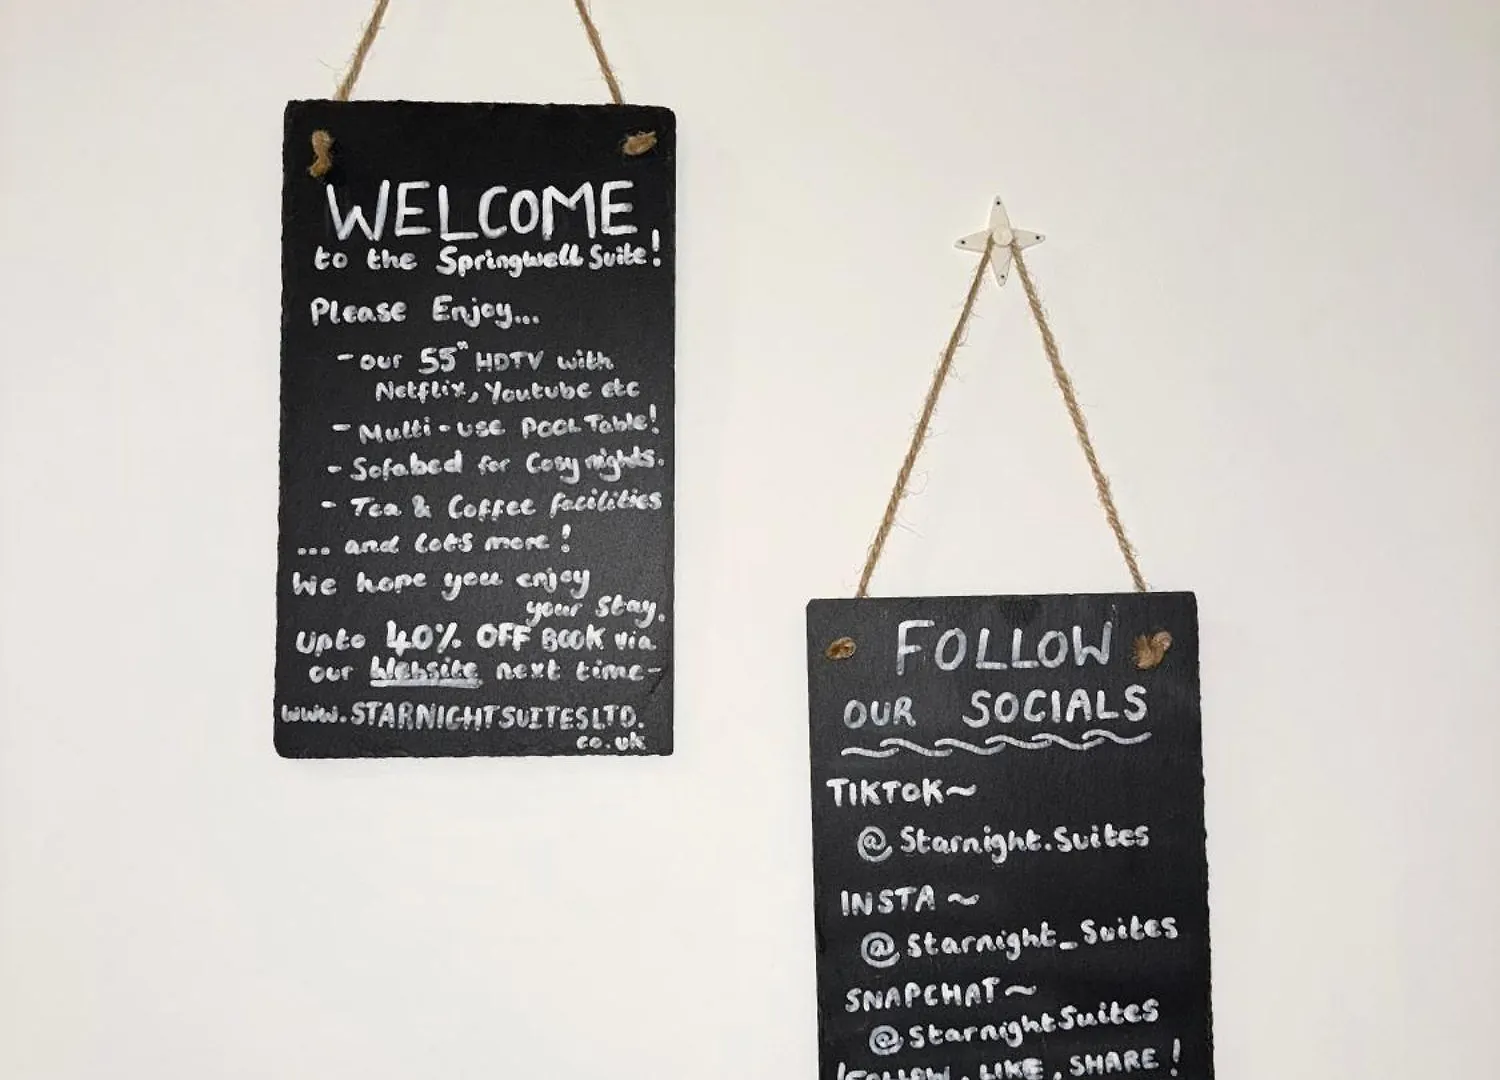 WELCOME
to the Springwell Suite!
Please Enjoy...
- our 55" HDTV with
Netflix, Youtube etc
- Multi-use POOL Table!
- Sofabed for Cosy nights.
- Tea & Coffee facilities
... and lots more!
We hope you enjoy
your stay.
Upto 40% OFF BOOK via
our Website next time-
www.STARNIGHTSUITESLTD.
co.uk
FOLLOW
OUR SOCIALS
TIKTOK~
@Starnight.Suites
INSTA~
@Starnight_Suites
SNAPCHAT~
@StarnightSuites
!FOLLOW, LIKE, SHARE!